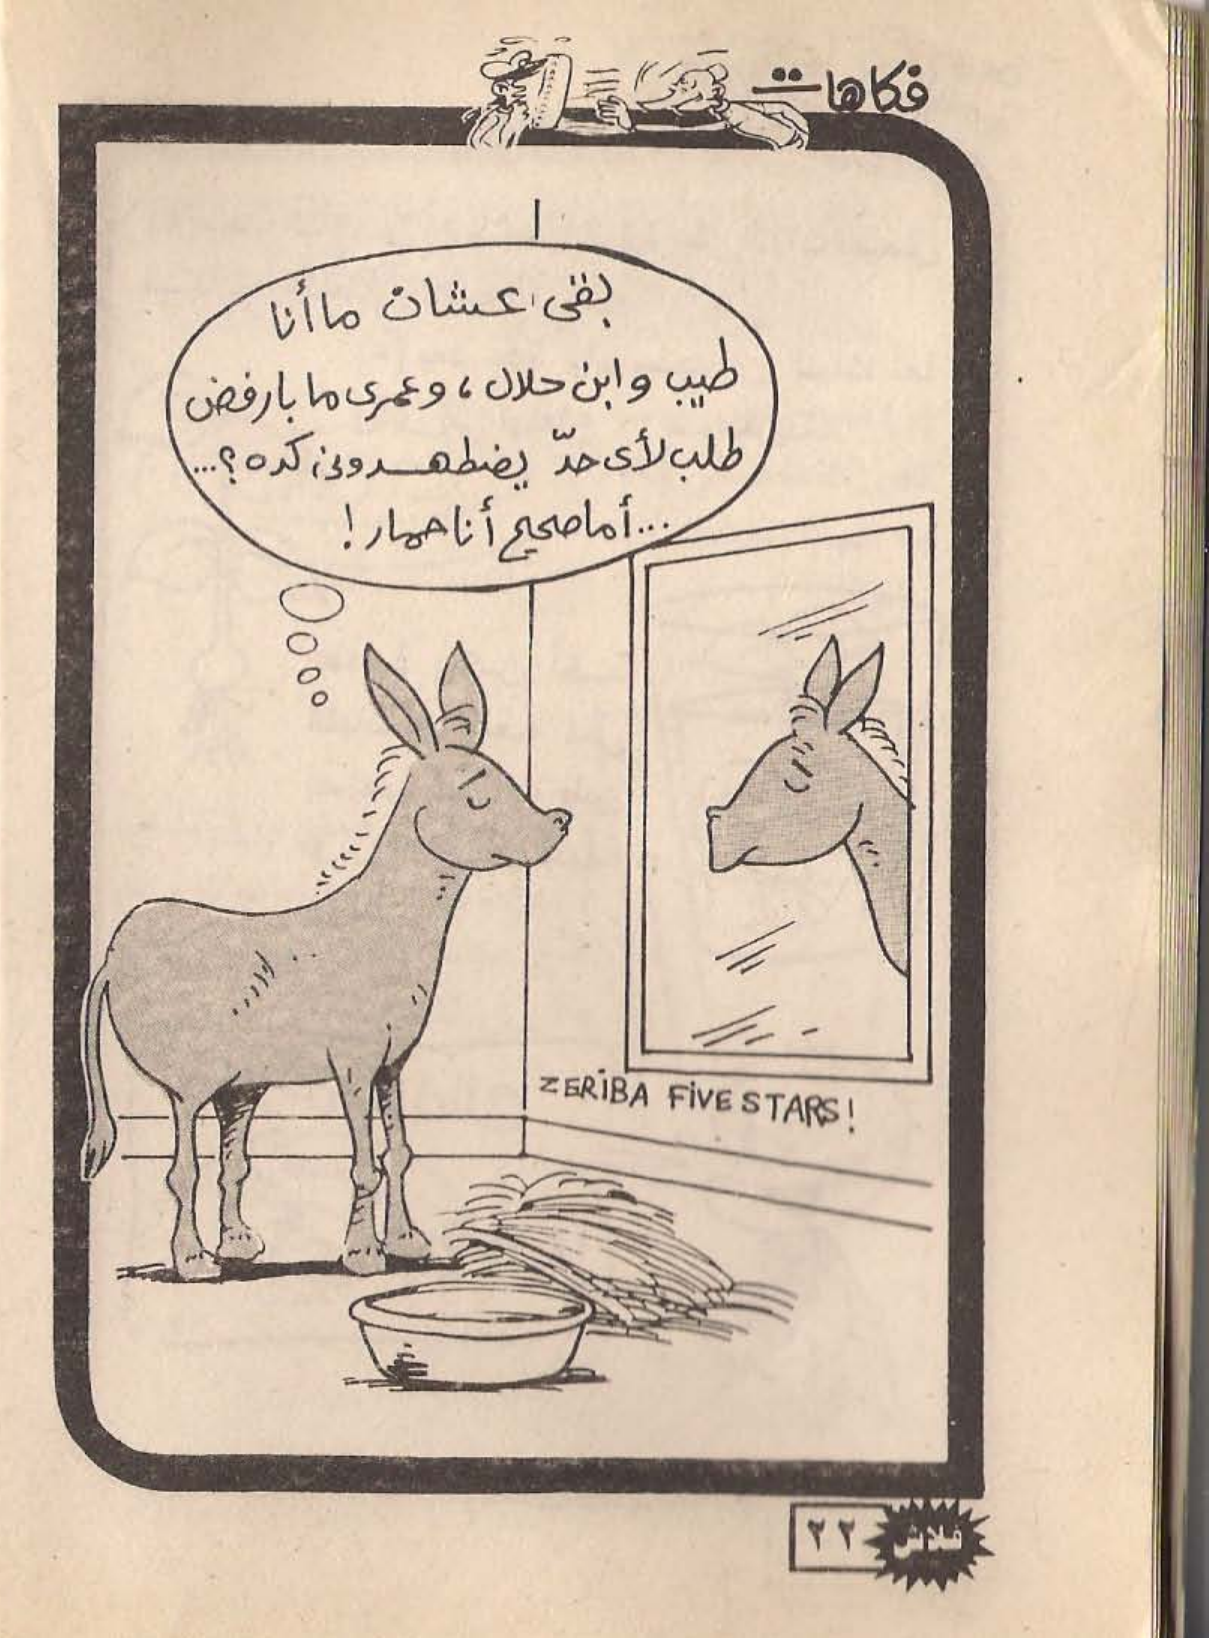 فكاهات
بقى عشان ما أنا
طيب وابن حلال، وعمرى ما بارفض
طلب لأى حدّ يضطهدونى كده؟...
...أما صحيح أنا حمار!
ZERIBA FIVE STARS!
٢٢
فلاش